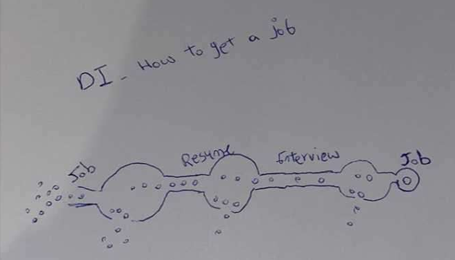 DI - How to get a job
Job Resume Interview Job